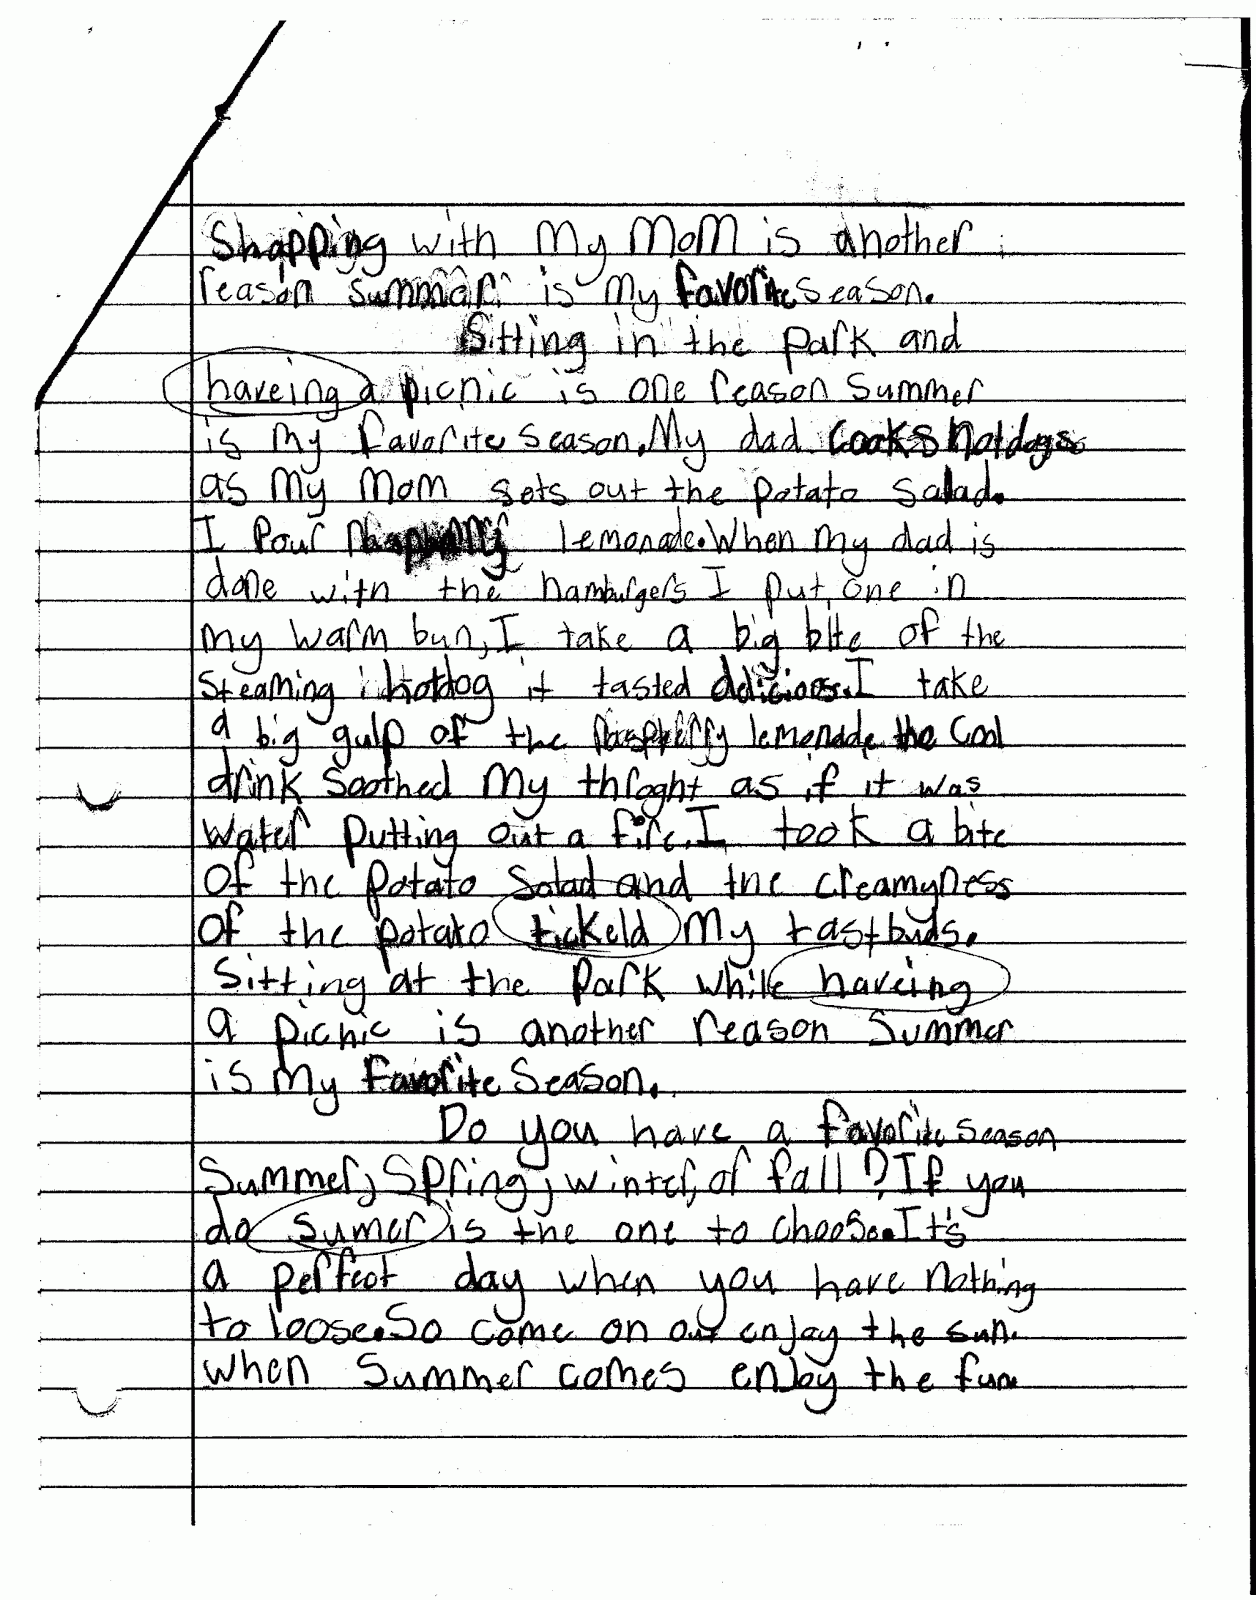 Shopping with my mom is another
reason summar is my favorite season.
Sitting in the park and
haveing a picnic is one reason summer
is my favorite season. My dad cooks hotdogs
as my mom sets out the potato salad.
I Pour raspberry lemonade. When my dad is
done with the hamburgers I put one in
my warm bun, I take a big bite of the
steaming hotdog it tasted delicious. I take
a big gulp of the raspberry lemonade the cool
drink soothed my throght as if it was
water putting out a fire. I took a bite
of the potato salad and the creamyness
of the potato tickeld my tastbuds.
Sitting at the park while haveing
a picnic is another reason Summer
is my favorite season.
Do you have a favorite season
Summer, Spring, winter, or fall? If you
do sumer is the one to choose. It's
a perfect day when you have nothing
to loose. So come on out enjoy the sun.
When Summer comes enjoy the fun